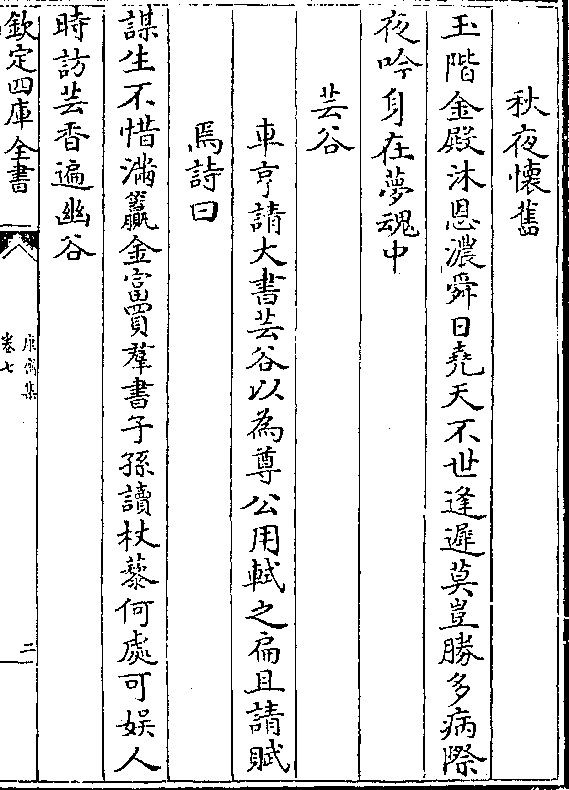 秋夜懷舊
玉階金殿沐恩濃舜日堯天不世逢遲莫豈勝多病際
夜吟身在夢魂中
芸谷
車亨請大書芸谷以為尊公用軾之扁且請賦
焉詩曰
謀生不惜滿籯金富買羣書子孫讀杖藜何處可娱人
時訪芸香遍幽谷
欽定四庫全書
卷七
二